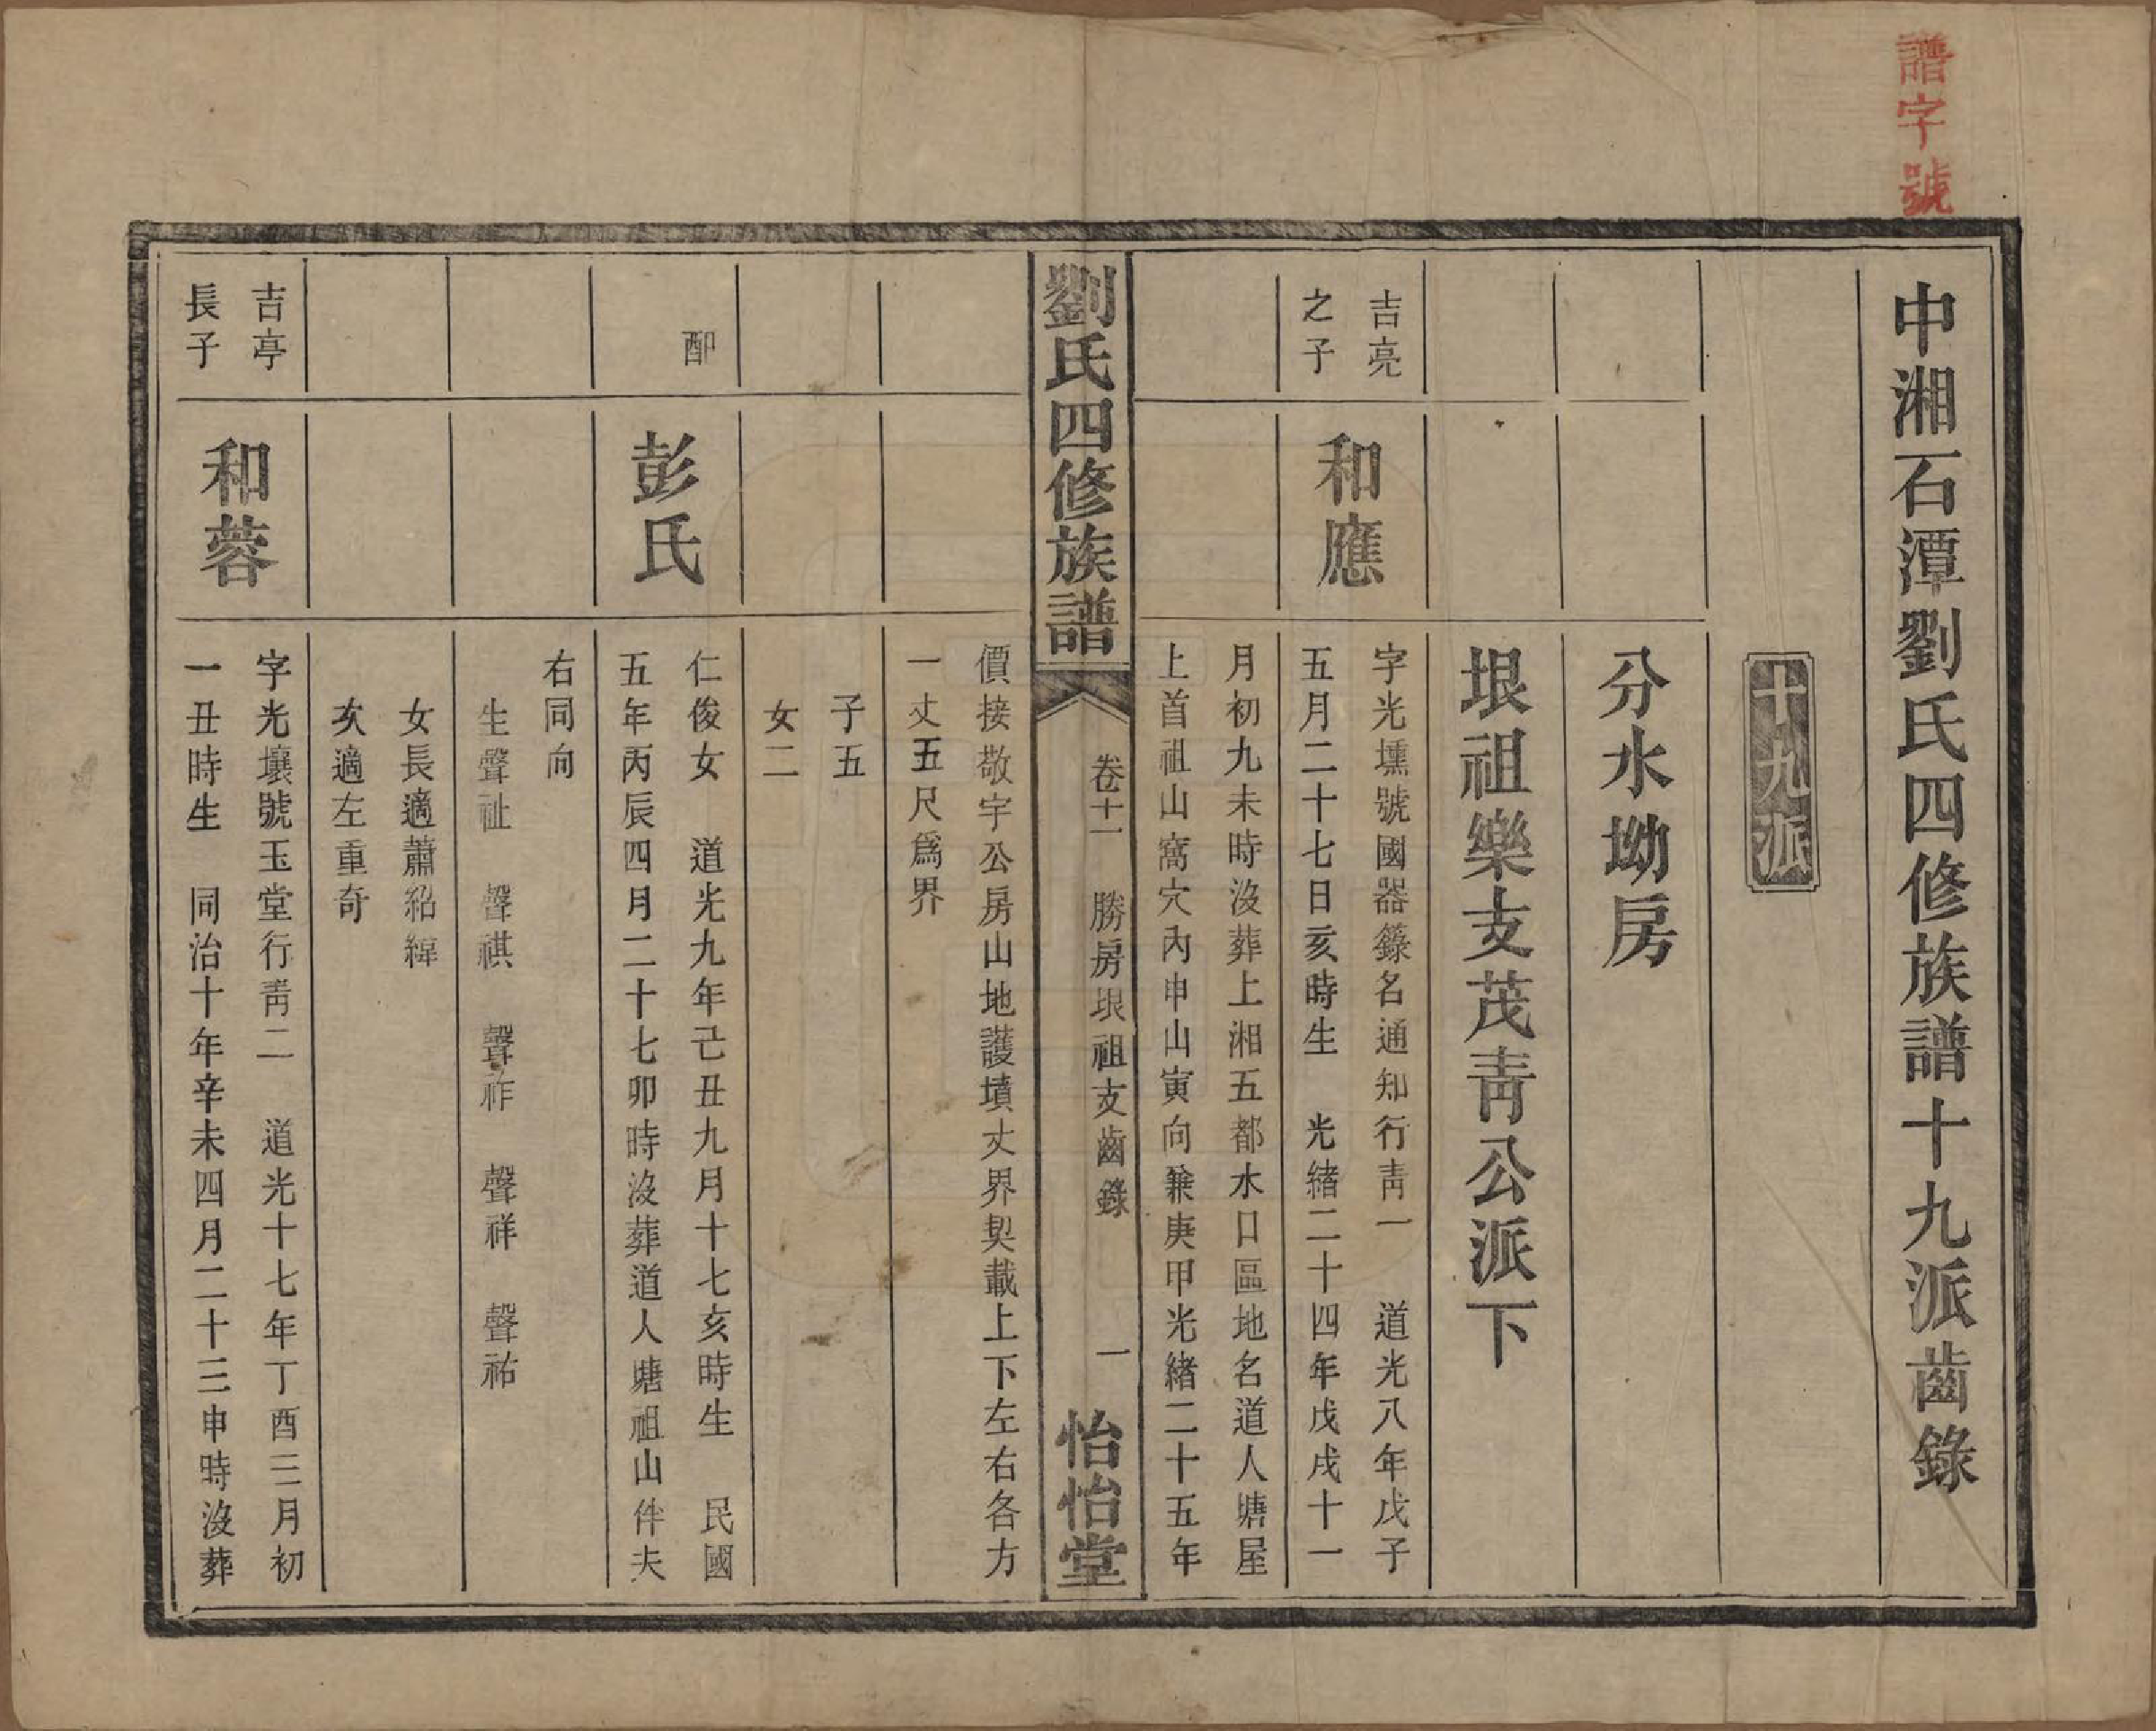 譜字號
中湘石潭劉氏四修族譜十九派齒錄
十九派
分水坳房
垠祖樂支茂靑公派下
吉亮
之子
和應
字光壎號國器籙名通知行靑一　道光八年戊子
五月二十七日亥時生　光緒二十四年戊戌十一
月初九未時沒葬上湘五都水口區地名道人塘屋
上首祖山窩穴內申山寅向兼庚甲光緒二十五年
劉氏四修族譜
卷十一　勝房垠祖支齒錄
一
怡怡堂
價接敬宇公房山地護墳丈界契載上下左右各方
一丈五尺爲界
子五
女二
配
彭氏
仁俊女　道光九年己丑九月十七亥時生　民國
五年丙辰四月二十七卯時沒葬道人塘祖山伴夫
右同向
生聲祉　聲祺　聲祚　聲祥　聲祐
女長適蕭紹緯
次適左重奇
吉亭
長子
和蓉
字光壤號玉堂行靑二　道光十七年丁酉三月初
一丑時生　同治十年辛未四月二十三申時沒葬